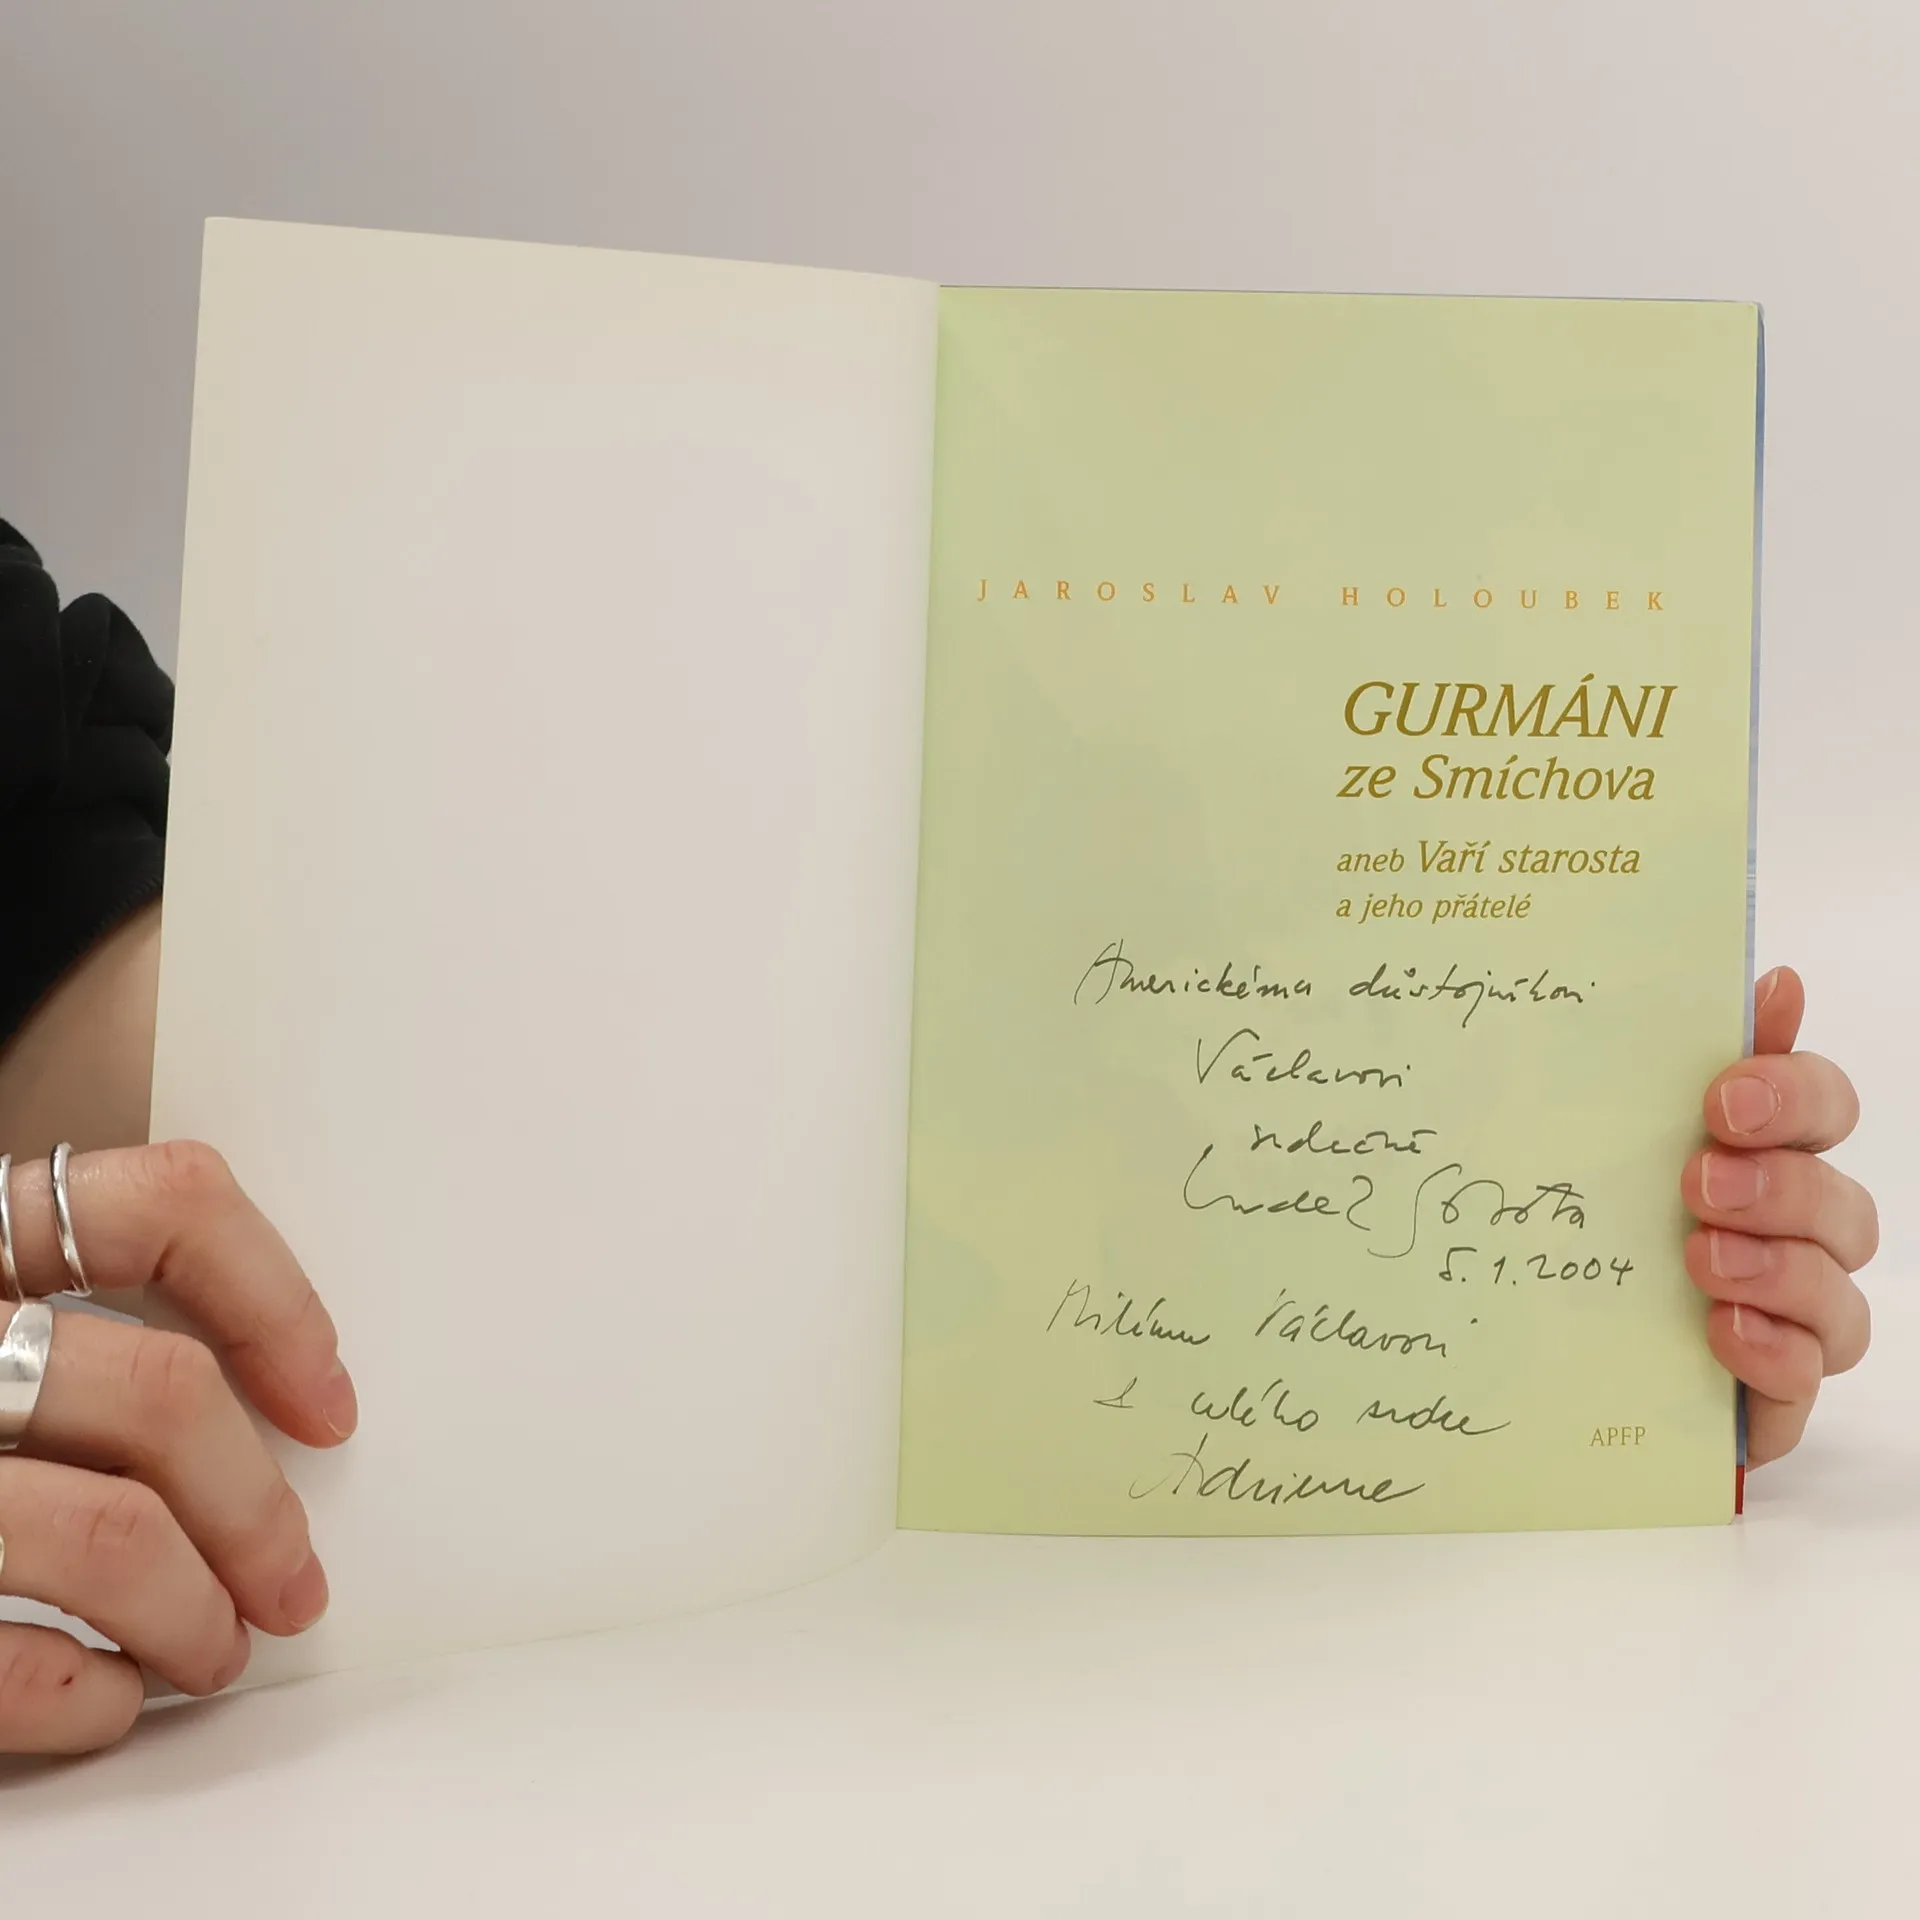 JAROSLAV HOLOUBEK
GURMÁNI
ze Smíchova
aneb Vaří starosta
a jeho přátelé
Americkému důstojníkovi
Václavovi
srdečně
Luděk Sobota
5.1.2004
Milému Václavovi
z celého srdce
Adrienne
APFP